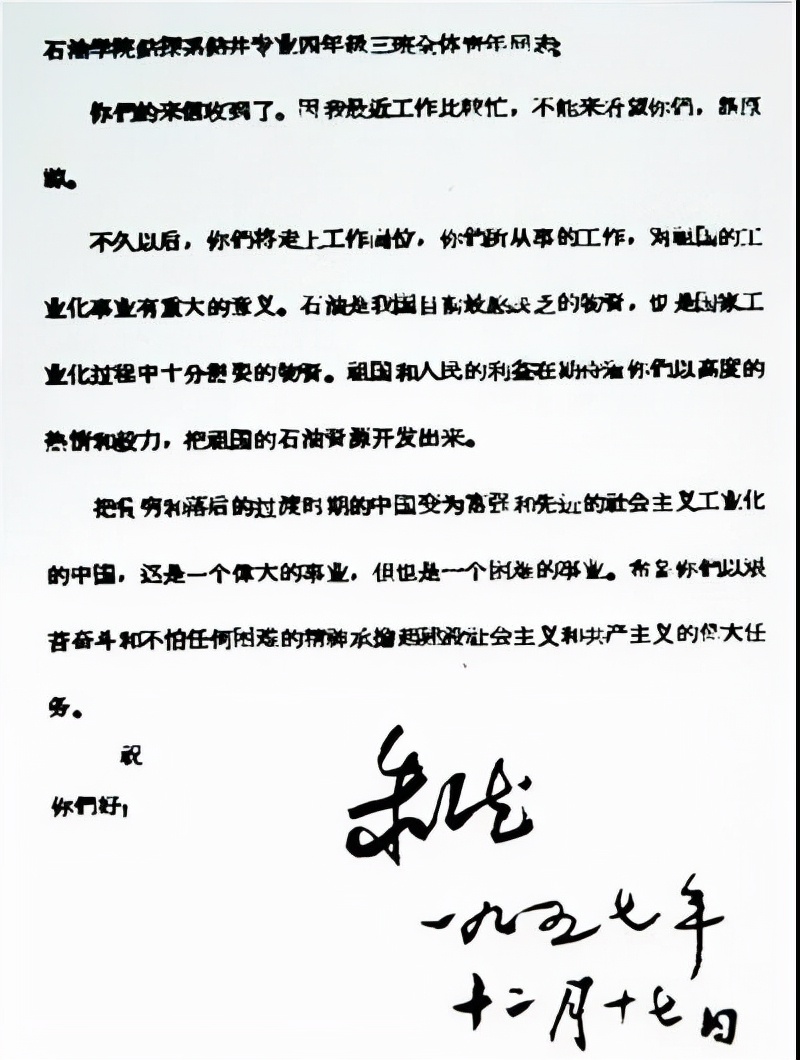 石油学院钻探系钻井专业四年级三班全体青年同志:
你們的来信收到了。因我最近工作比較忙，不能来看望你們，請原
諒。
不久以后，你們将走上工作崗位，你們所从事的工作，对祖国的工
业化事业有重大的意义。石油是我国目前最感缺乏的物資，也是国家工
业化过程中十分需要的物資。祖国和人民的利益在期待着你們以高度的
热情和毅力，把祖国的石油資源开发出来。
把貧穷和落后的过渡时期的中国变为富强和先进的社会主义工业化
的中国，这是一个偉大的事业，但也是一个困难的事业。希望你們以艰
苦奋斗和不怕任何困难的精神承擔起建設社会主义和共产主义的偉大任
务。
祝
你們好！
朱德
一九五七年
十二月十七日